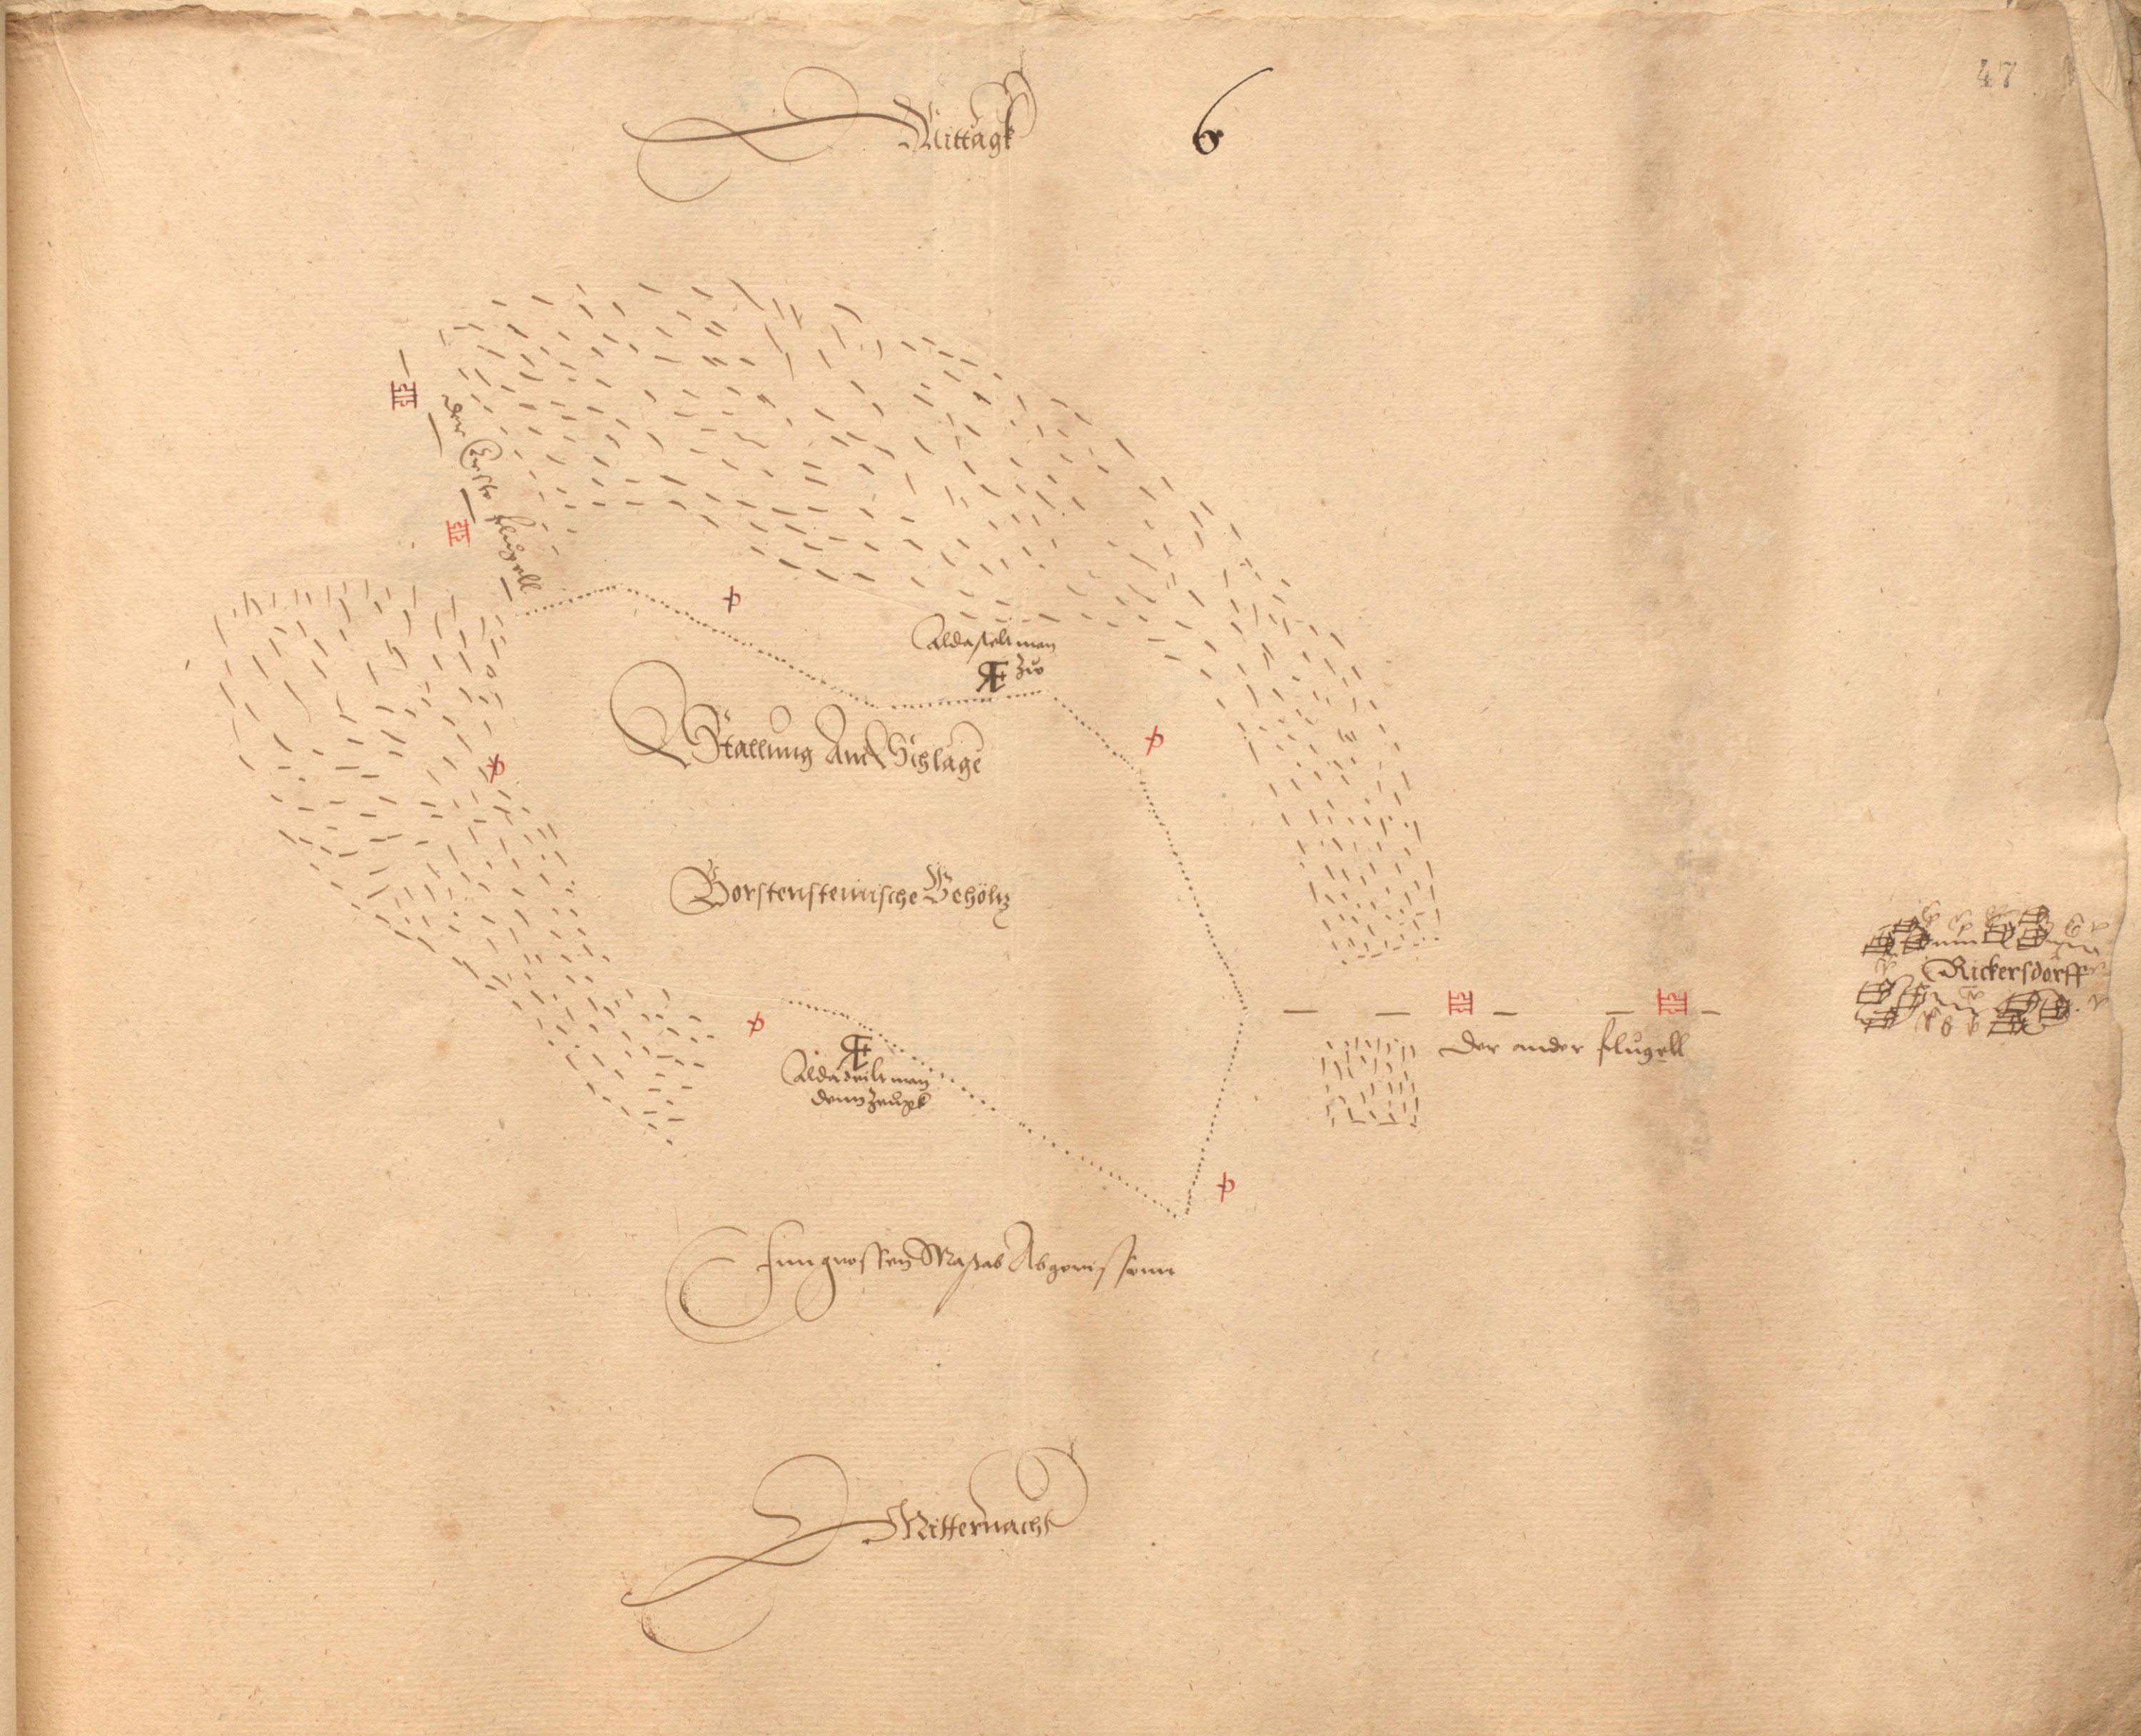 47
Mittagk
6
der Erste flugell
Alda stelt man
zu
Stallung Am Schlage
Borstensteinische Gehöltz
Rickersdorff
der ander flugell
Alda teilt man
denn Zeugk
Inn grossen Masstab Abgerissenn
Mitternacht